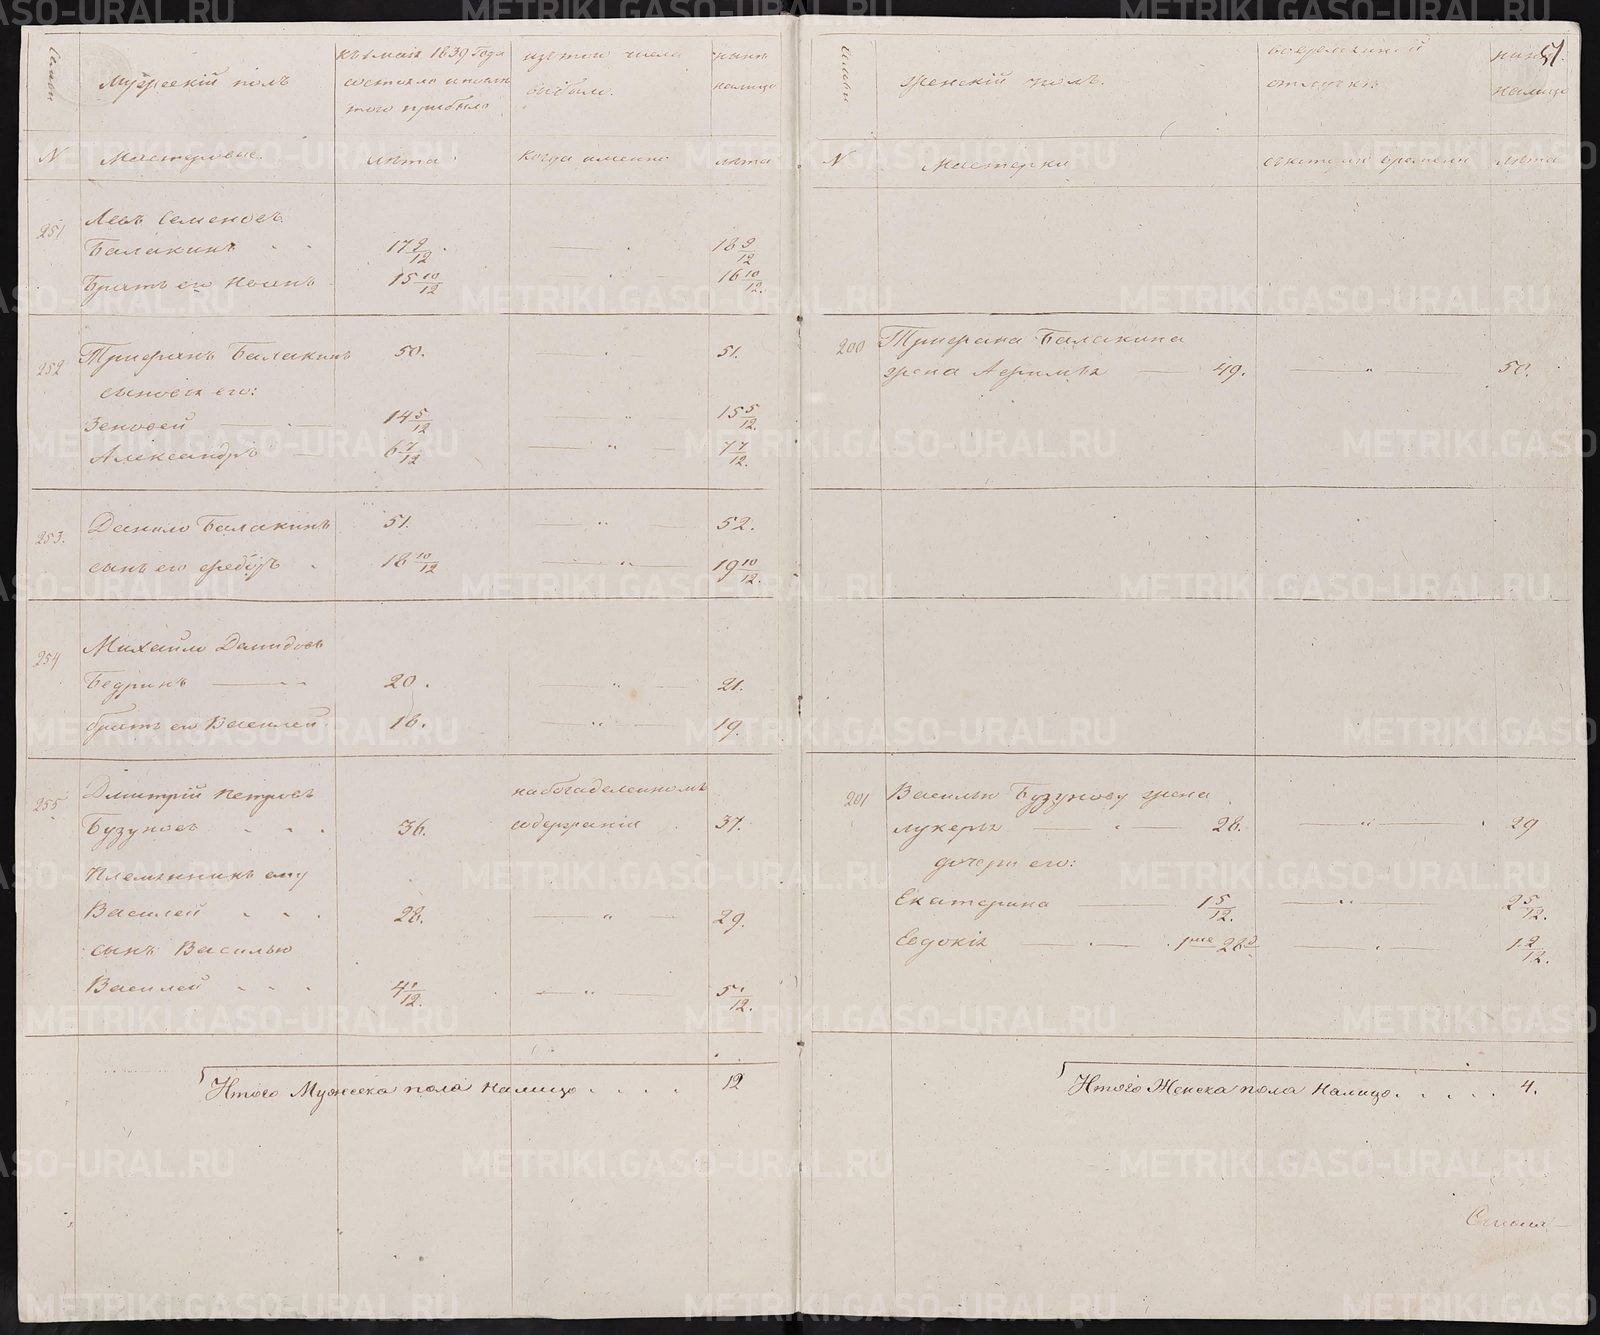 51.
Семьи
Мужескій полъ
Къ 1 мая 1839 года
состояло и после
того прибыло
изъ того числа
выбыло.
налицо
N
Мастеровые.
лѣта
когда именно
лѣта
251
Левъ Семеновъ
Балакинъ 17 9/12 18 9/12
Братъ его Іосифъ 15 10/12 16 10/12.
252 Трифанъ Балакинъ 50. 51.
сыновья его:
Зеновей 14 5/12 15 5/12.
Александръ 6 7/12 7 7/12.
253. Данило Балакинъ 51. 52.
сынъ его Федоръ 18 10/12 19 10/12.
254
Михайло Демидовъ
Бедринъ 20. 21.
братъ его Василей 18. 19.
255
Дмитрій Петровъ
Бузуновъ 36.
на богаделенномъ
содержаніи 37.
Племянникъ ему
Василей 28. 29.
сынъ Василью
Василей 4 1/12. 5 1/12.
Итого Мужеска пола налицо . . . . 12
Семьи
Женскій полъ.
во временной
отлучкѣ
налицо
N
Мастерки
съ котораго времени
лѣта
200 Трифана Балакина
жена Афимья 49. 50.
201 Василью Бузунову жена
Лукерья 28. 29
дочери его:
Екатерина 1 5/12. 2 5/12.
Евдокія 1 2/12.
Итого Женска пола налицо . . . . . 4.